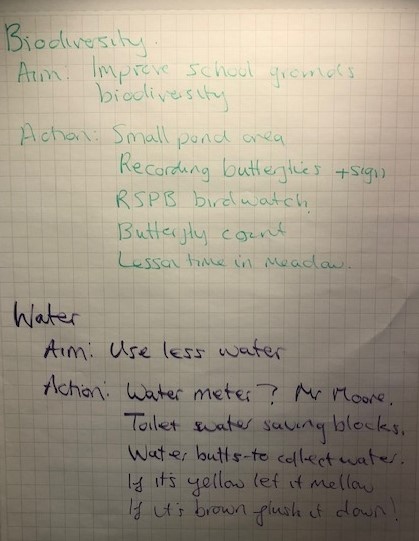 Biodiversity.
Aim: Improve school grounds
biodiversity
Action: Small pond area
Recording butterflies + sign
RSPB birdwatch.
Butterfly count
Lesson time in meadow.
Water
Aim: Use less water
Action: Water meter? Mr Moore.
Toilet water saving blocks.
Water butts - to collect water.
If it's yellow let it mellow
If it's brown flush it down!